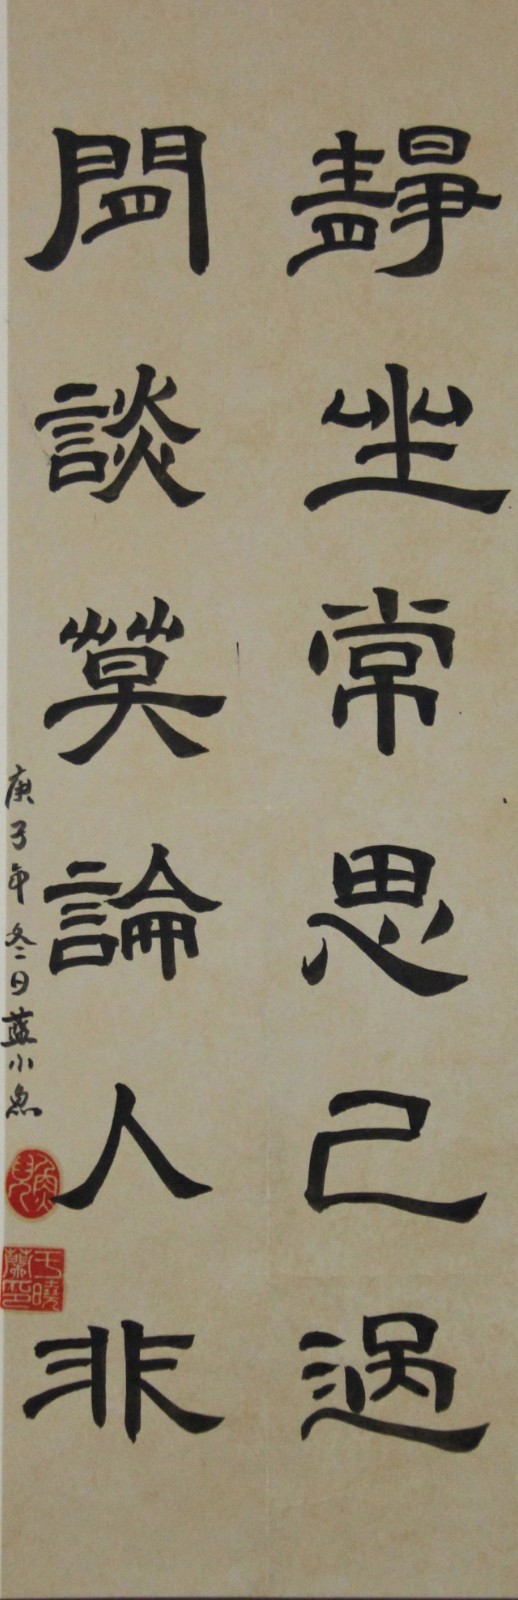 靜坐常思己過
閒談莫論人非
庚子年冬日藍小魚